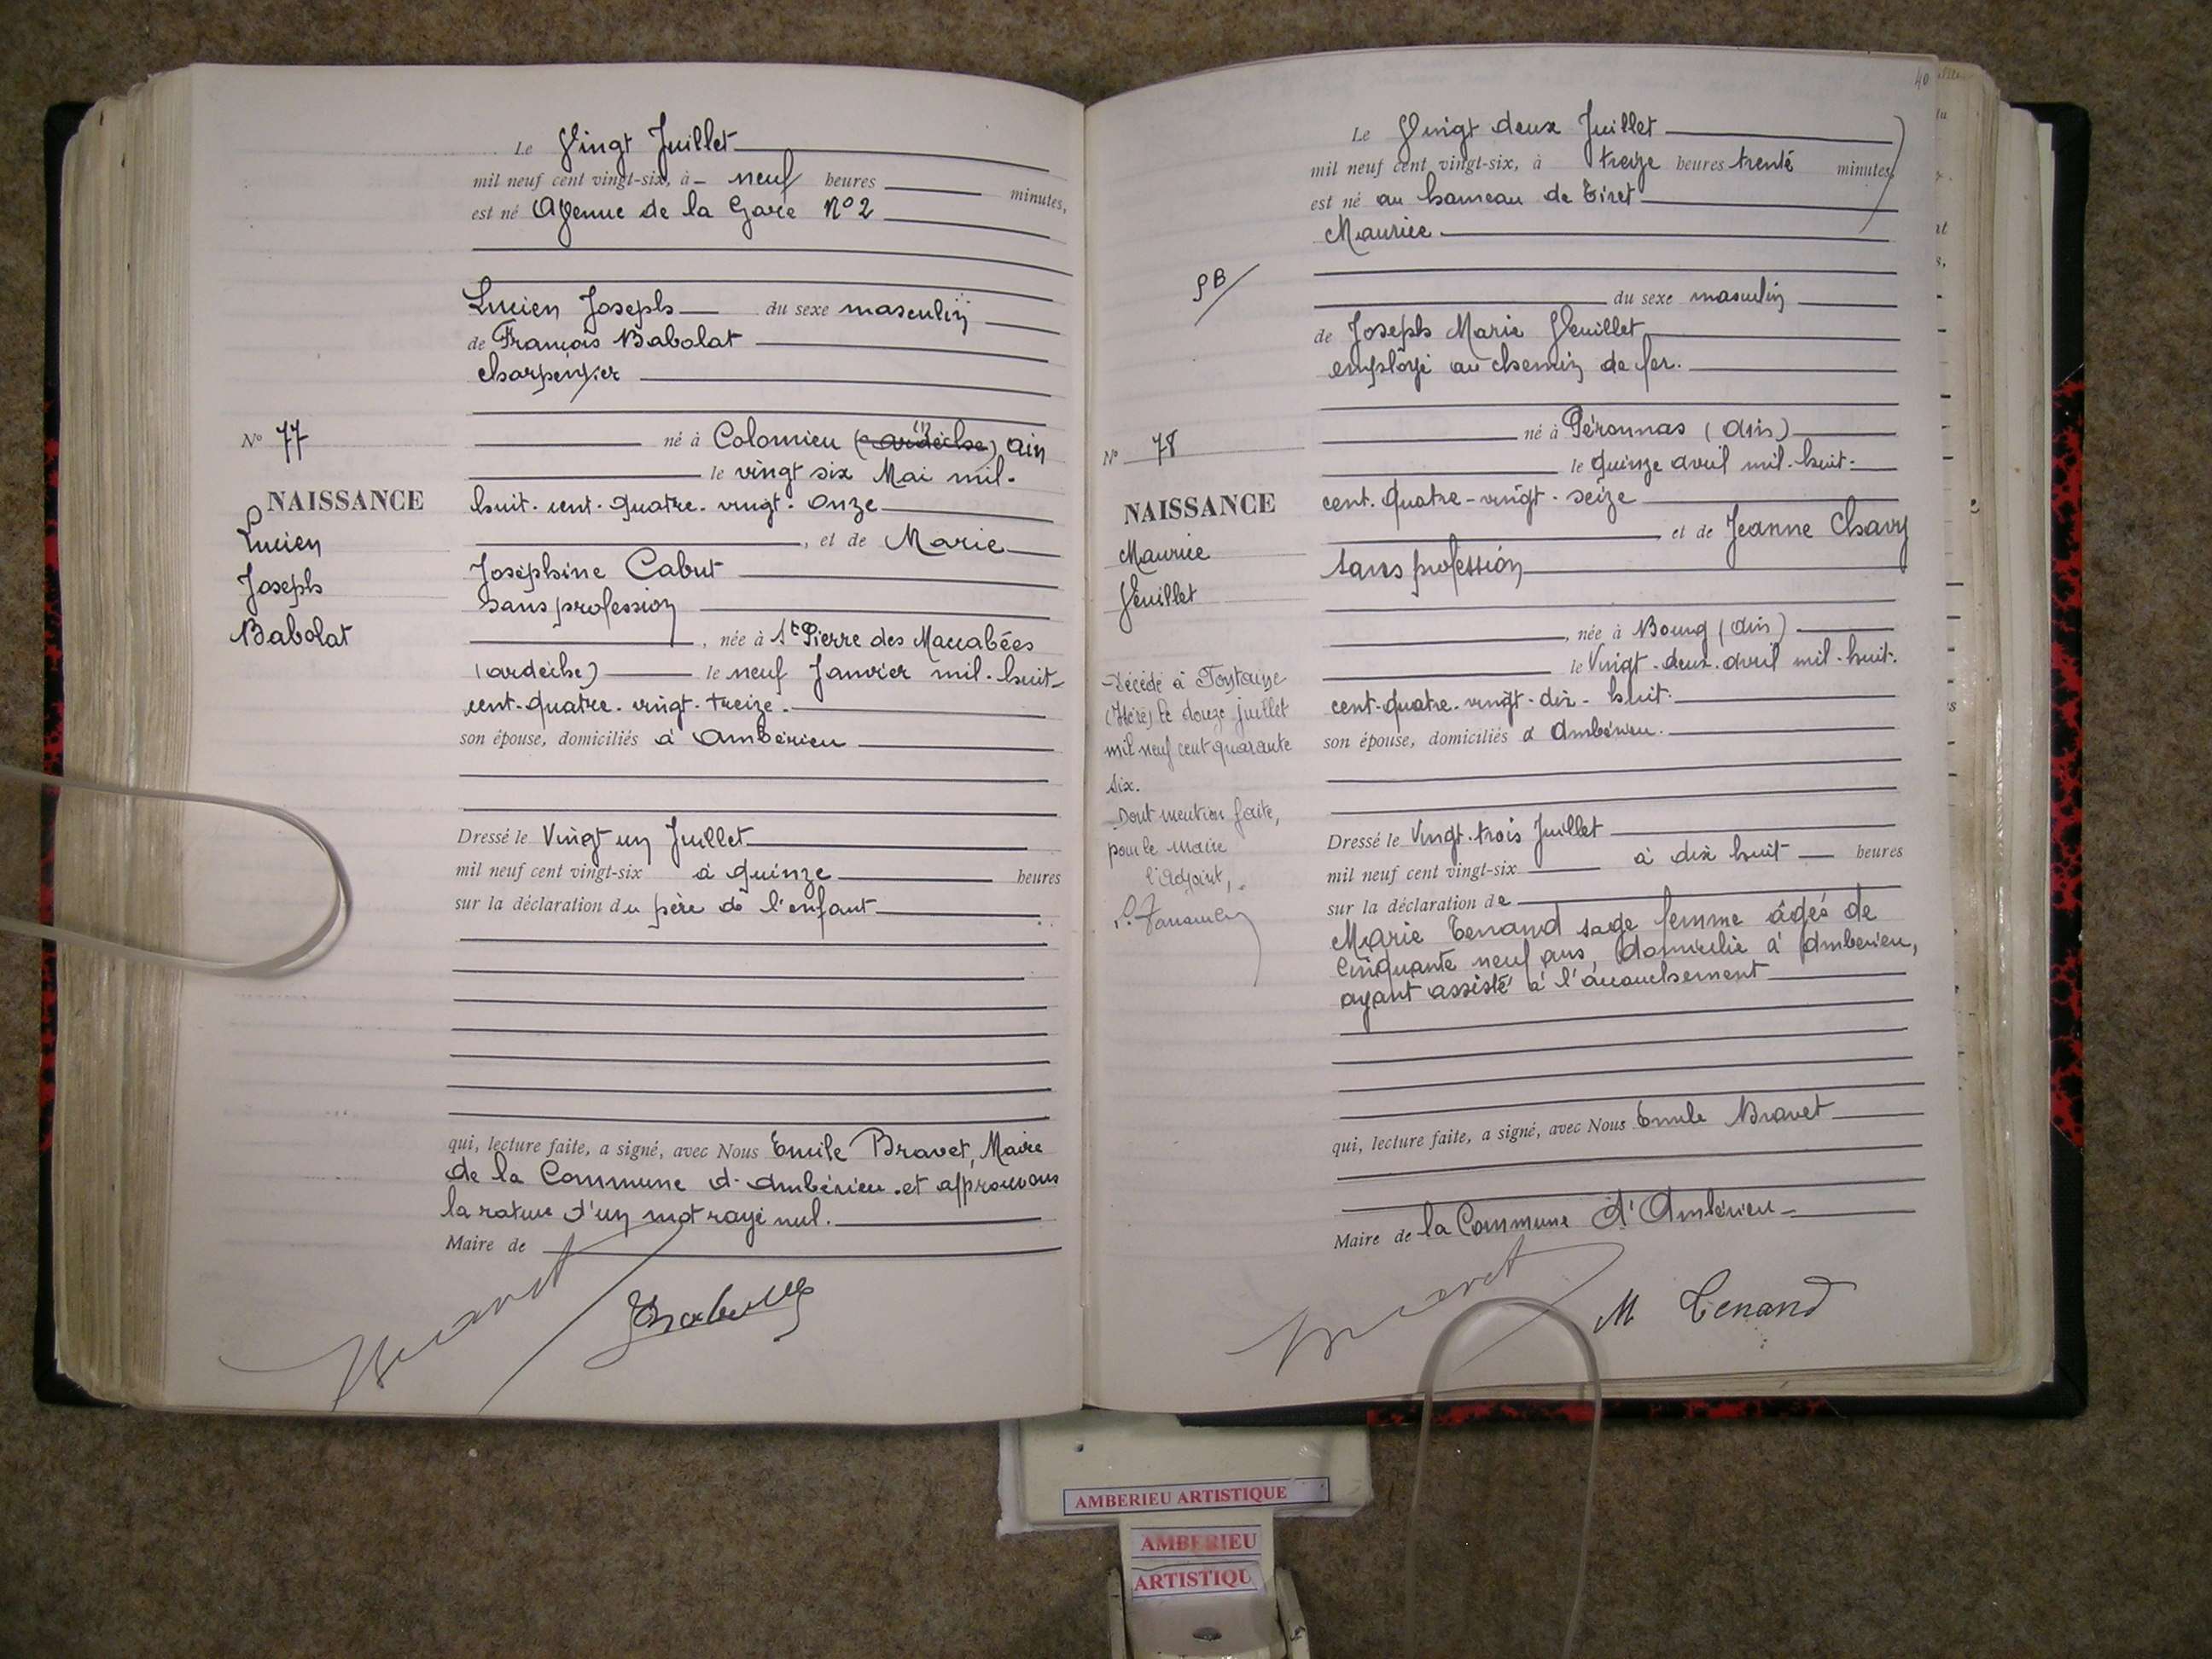 Le Vingt Juillet
mil neuf cent vingt-six, à neuf heures minutes,
est né Avenue de la Gare N° 2
Lucien Joseph du sexe masculin
de François Babolat
charpentier
né à Colomieu (ardèche) (1) Ain
le vingt six Mai mil.
huit. cent. quatre. vingt. onze
, et de Marie
Joséphine Cabut
sans profession
, née à St Pierre des Maccabées
(ardèche) le neuf Janvier mil. huit-
cent-quatre. vingt. treize.
son épouse, domiciliés à Ambérieu
Dressé le Vingt un Juillet
mil neuf cent vingt-six à quinze heures
sur la déclaration du père de l'enfant
qui, lecture faite, a signé, avec Nous Emile Bravet, Maire
de la Commune d'Ambérieu. et approuvons
la rature d'un mot rayé nul.
Maire de
N° 77
NAISSANCE
Lucien
Joseph
Babolat
40
Le Vingt deux Juillet
mil neuf cent vingt-six, à treize heures trente minutes,
est né au hameau de Tiret
Maurice
du sexe masculin
de Joseph Marie Veuillet
employé au chemin de fer.
né à Péronnas (Ain)
le quinze avril mil. huit-
cent. quatre-vingt. seize
et de Jeanne Chavy
sans profession
, née à Bourg (Ain)
le Vingt. deux. avril mil. huit.
cent-quatre. vingt. dix-huit.
son épouse, domiciliés à Ambérieu.
Dressé le Vingt. trois Juillet
mil neuf cent vingt-six à dix huit heures
sur la déclaration de
Marie Tenand sage femme âgée de
cinquante neuf ans, domiciliée à Ambérieu,
ayant assisté à l'accouchement
qui, lecture faite, a signé, avec Nous Emile Bravet
Maire de la Commune d'Ambérieu
M Tenand
N° 78
NAISSANCE
Maurice
Veuillet
Décédé à
le douze juillet
mil neuf cent quarante
six.
Dont mention faite,
pour le maire
l'Adjoint,
AMBERIEU ARTISTIQUE
AMBERIEU
ARTISTIQU